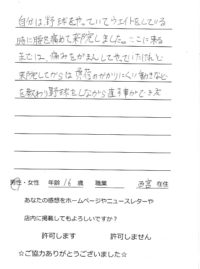 自分は野球をやっていてウエイトをしている
時に腰を痛めて来院しました。ここに来る
までは、痛みをがまんしてやっていたけれど
来院してからは負荷のかかりにくい動きなど
を教わり野球をしながら直す事ができ
男性・女性 年齢 16 歳 職業 在住
あなたの感想をホームページやニュースレターや
店内に掲載してもよろしいですか？
許可します 許可しません
☆ご協力ありがとうございました☆